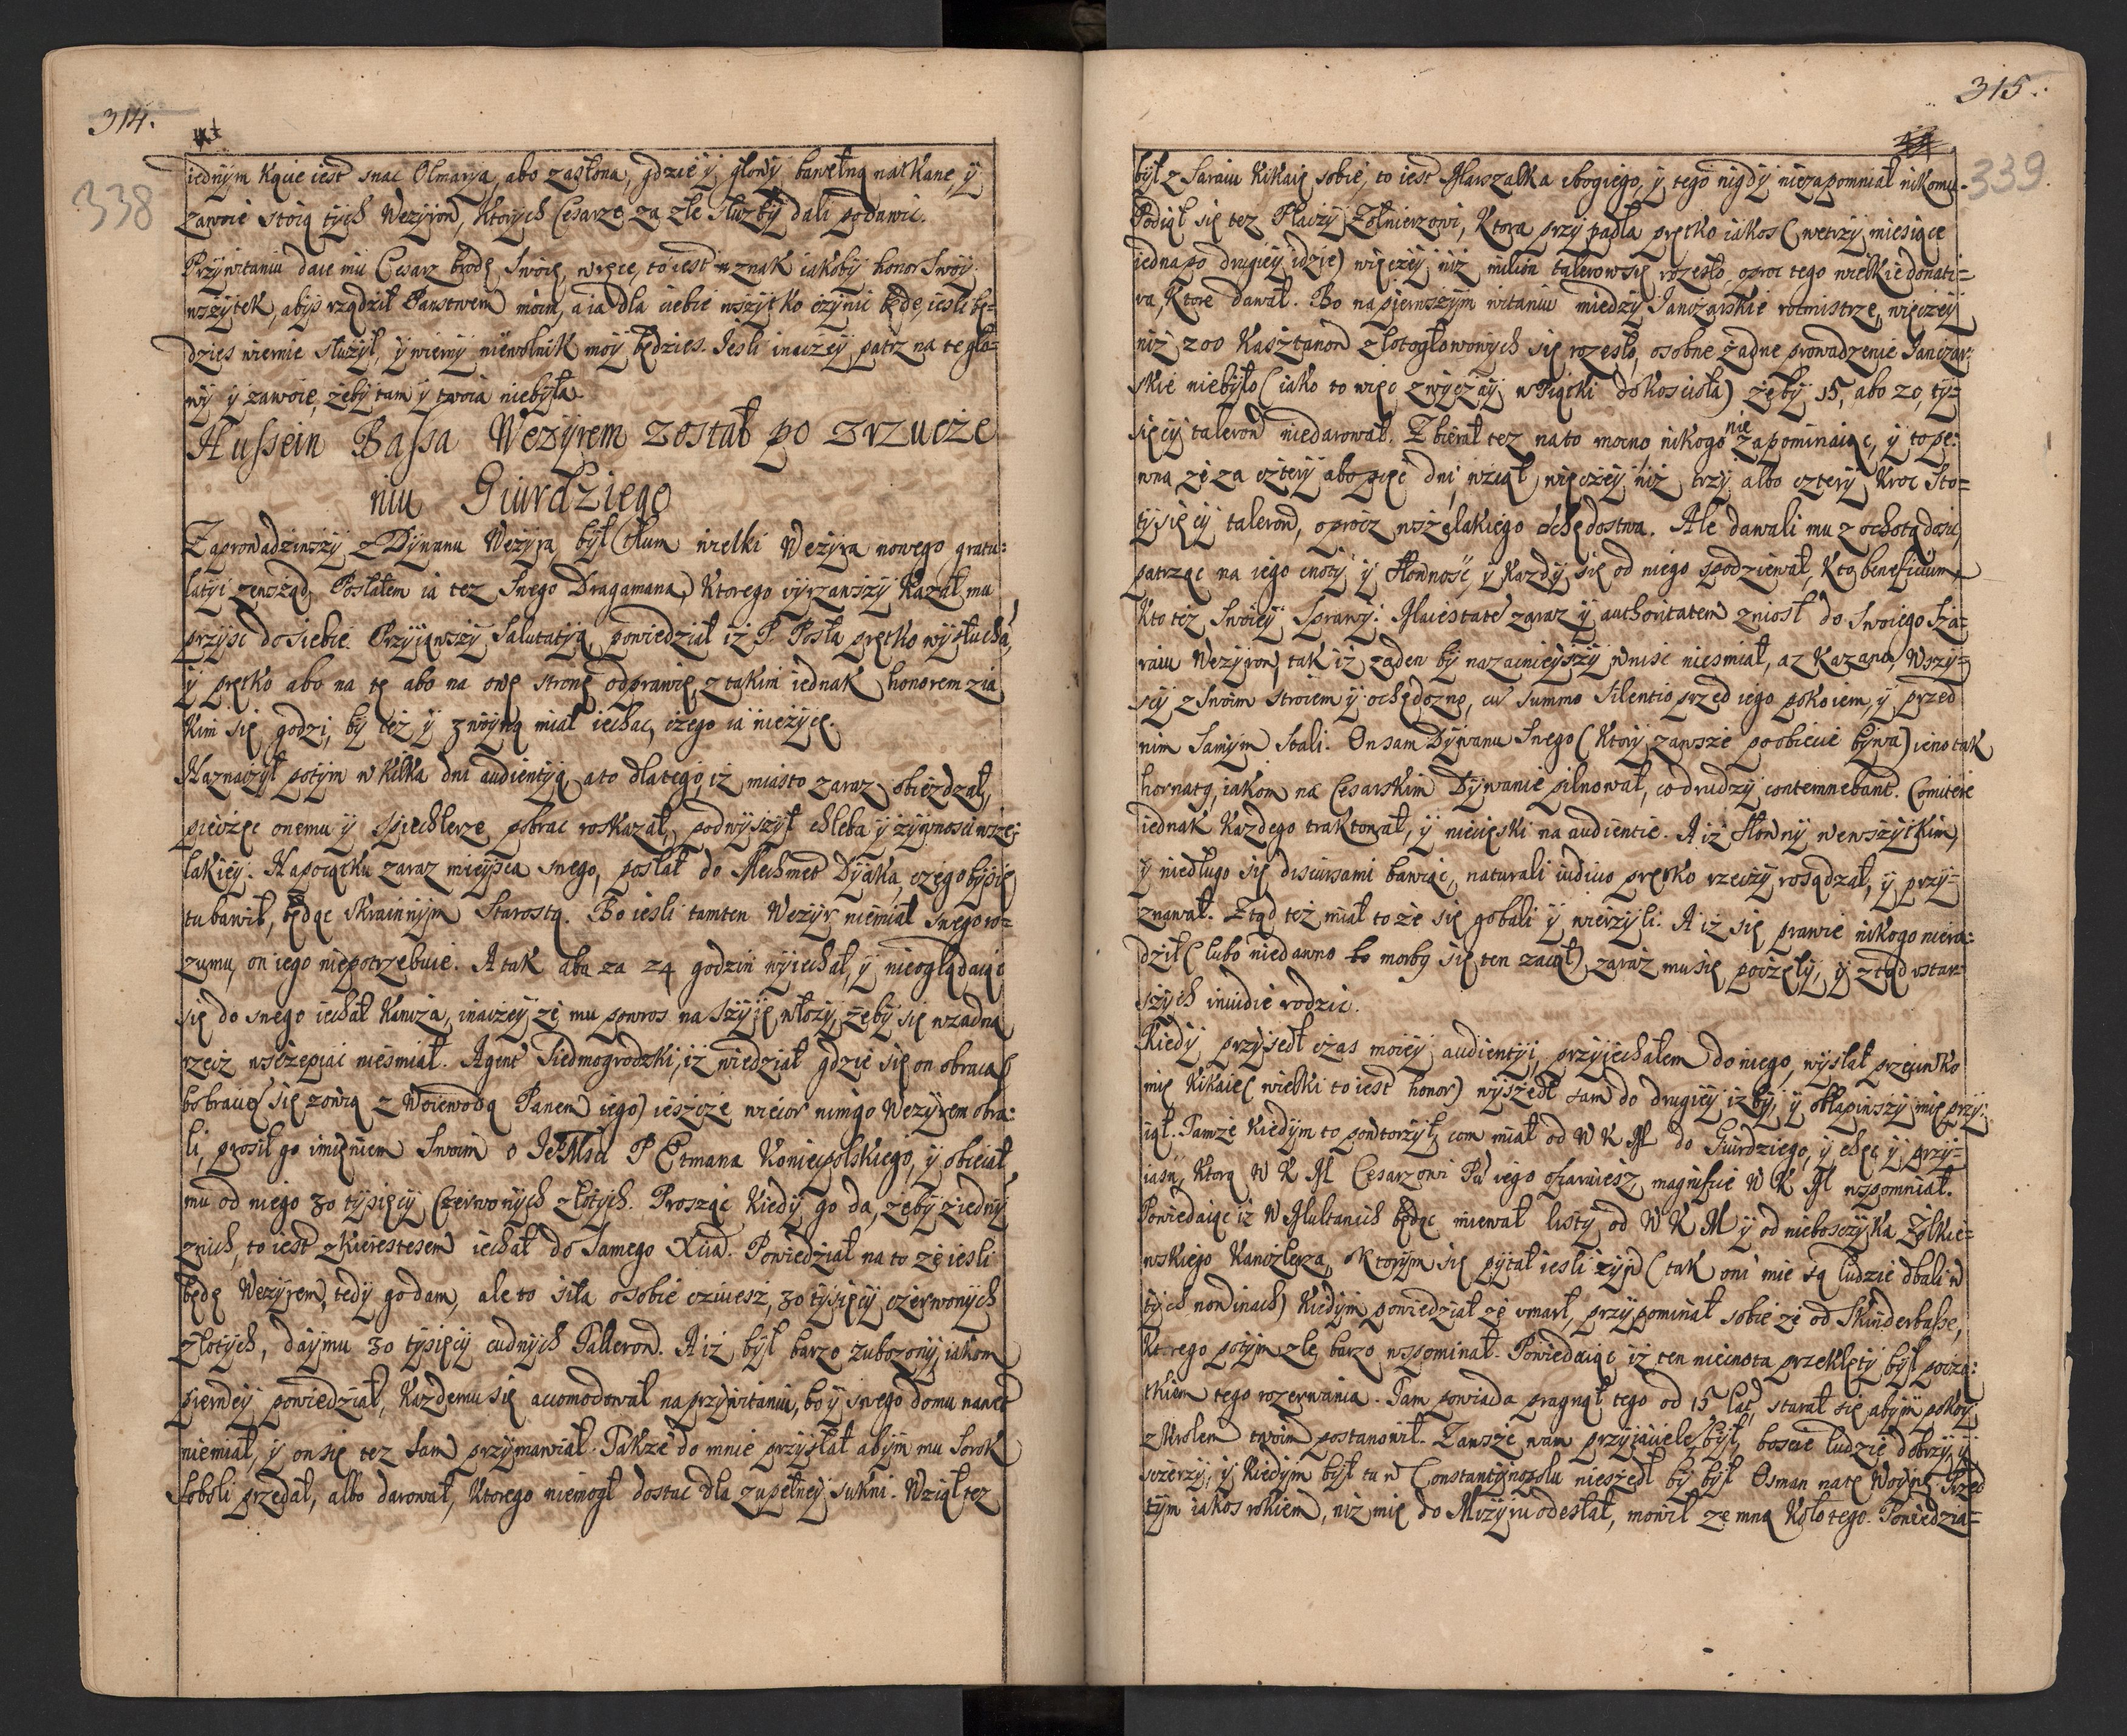 314.
338
iednÿm kącie iest snać Olmarÿa, abo zasłona, gdzie ÿ głowÿ bawełną natkane, ÿ
zawoie stoią tÿch Wezÿrow, ktorÿch Cesarze za złe służbÿ dali podawić.
Przÿwitaniu daie mu Cesarz brodę Swoię, w ręce, to iest w znak iakobÿ honor Swoÿ
wszÿtek, abÿs rządził Panstwem moim, a ia dla ciebie wszÿtko czÿnić będę iesli bę-
dziesz wiernie służył, ÿ wiernÿ niewolnik moÿ będziesz. Iesli inaczeÿ, patrz na te gło-
wÿ ÿ zawoie, żebÿ tam ÿ twoia niebÿła.
Hussein Bassa Wezÿrem został po zrzuceże
niu Giurdziego
Zaprowadziwszÿ z Dÿwanu Wezÿra bÿł tłum wielki Wezÿra nowego gratu-
latÿi zewsząd. Posłałem ia tez Swego Dragamana, Ktorego uÿrzawszÿ kazał mu
przÿsć do siebie. Przÿiąwszÿ Salutatÿą, powiedział iż P. Posła prętko wÿsłucha,
ÿ prętko abo na tę abo na owę stronę odprawię, z takim iednak honorem z ia
kim się godzi, bÿ też ÿ z woÿną miał iechać, czego ia nieżÿcę.
Naznaczÿł potÿm w kilka dni audientÿą, a to dlatego, iż miasto zaraz obieżdzał,
pieczęć onemu ÿ spiechlerze pobrać roskazał, podwÿszÿł chleba ÿ zÿwnosci wsze-
lakieÿ. Napoczątku zaraz mieÿsca swego, posłał do Mechmet Dÿaka, czego bÿ się
tu bawił, będąc Ukrainnÿm Starostą. Bo iesli tamten Wezÿr niemiał swego ro-
zumu, on iego niepotrzebuie. A tak aba za 24 godzin wÿiechał, ÿ nieoglądaiąc
się do swego iechał Kawża, inaczeÿ że mu powros na szÿię włożÿ, żebÿ się wżadną
rzecz wsczepiać nieśmiał. Agent Siedmogrodzki, iż wiedział gdzie się on obracał
bo bracią się zowią z Woiewodą Panem iego) ieszcze wieczor nim go Wezÿrem obra-
li, prosił go imieniem Swoim o IeMMsci P Etmana Koniecpolskiego, ÿ obiecał
mu od niego 30 tÿsięcÿ Czerwonÿch złotÿch. Prosząc kiedÿ go da, żebÿ z iednÿ
znich, to iest z Kierestesem iechał do Samego Xcia. Powiedział na to że iesli
będę Wezÿrem, tedÿ go dam, ale to siła osobie czniesz, 30 tÿsięcÿ czerwonÿch
złotÿch, daÿmu 30 tÿsięcÿ cudnÿch Tallerow. A iż bÿł barzo zubożonÿ, iakom
pierweÿ powiedział, każdemu się accomodował na przÿwitaniu, bo ÿ swego domu nawet
niemiał, ÿ on się tez sam przÿmawiał. Także do mnie przÿsłał abÿm mu Sorok
Soboli przedał, albo darował, ktorego niemogł dostać dla zupełneÿ sukni. Wziął tez
315.
339
bÿł z Saraiu Kikaię sobie, to iest Marszałka ubogiego, ÿ tego nigdÿ niezapomniał nikomu.
Podiął się tez Płaczÿ Żołnierzowi, Ktora przÿpadła prętko iakos (wetrzÿ miesiące
iedna po drugieÿ idzie) więczeÿ niz milion talerow się rozesło, oproc tego wielkie donati-
va, Ktore dawał. Bo na pierwszÿm witaniu miedzÿ Ianczarskie rotmistrze, więczeÿ
niż 200 Kasztanow złotogłowowÿch się rozesło, osobne żadne prowadzenie Ianczar-
skie niebÿło (iako to więc zwÿczaÿ w Piątki do kosciola) żebÿ 15, abo 20, tÿ-
sięcÿ talerow niedarował. Zbierał tez na to mocno nikogo nie zapominaiąc, ÿ to pe-
wna że za czterÿ abo pięc dni, wziął więczeÿ niż trzÿ albo czterÿ kroć Sto-
tÿsięcÿ talerow, oprocz wszelakiego ochędostwa. Ale dawali mu z ochotą dosić,
patrząc na iego cnotÿ ÿ Słowność, ÿ każdÿ się od niego spodziewał, Kto beneficium,
Kto też Swoieÿ Sprawÿ: Maiestate zaraz ÿ authoritatem zniosł do Swoiego Sza-
raiu Wezÿrow, tak iż żaden bÿ nazacnieÿszÿ wniść niesmiał, aż kazano, Wszÿ-
scÿ z Swoim stroiem ÿ ochędozne, cu summo Silentio przed iego pokoiem, ÿ przed
nim Samÿm stali. On sam Dÿwanu Swego (Ktorÿ zawsze po obiecie bÿwa) ieno tak
hornatą, iakom na Cesarskim Dÿwanie pilnował, co drudzÿ contemnebant. Comiterè
iednak każdego traktował, ÿ nieciężki na audientie. A iż słownÿ wewszÿtkim,
ÿ niedługo się discursami bawiąc, naturali iudicio prętko rzeczÿ rosądzał, ÿ przÿ-
znawał. Ztąd też miał to że się go bali ÿ wierzÿli. A iż się prawie nikogo niera-
dził (lubo niedawno to morbą się ten zaczął) zaraz mu się poczęlÿ, ÿ ztąd ustar-
szÿch inuidie rodzic.
Kiedÿ przÿsedł czas moieÿ audientÿi, przÿiechałem do niego, wÿsłał przeciwko
mię Kikaię (wielki to iest honor) wÿszedł sam do drugieÿ izbÿ, ÿ obłapiwszÿ mię przÿ-
iął. Tamże kiedÿm to powtorzÿł, com miał od W K M do Giurdziego, ÿ chęć ÿ przÿ-
iasń, ktorą W K M Cesarzowi Pa' iego ofiaruiesz, magnificè W K M wspomniał.
Powiedaiąc iz W Multaniech będąc miewał listÿ od W K M ÿ od niebosczÿka Żołkie-
wskiego Kanclerza, o ktorÿm się pÿtał iesli żÿw (tak oni mie są ludzie dbali w
tÿch nowinach) kiedÿm powiedział że umarł, przÿpominał sobie że od Skinderbasse,
Ktorego potÿm zle barzo wspominał. Powiedaiąc iż ten niecnota przeklętÿ bÿł począ-
tkiem tego rozerwania. Tam powiada pragnął tego od 15 lat, starał się abÿm pokoÿ
z Krolem twoim postanowił. Zawsze wam przÿiacielem bÿł, boscie ludzie dobrzÿ, ÿ
sczerzÿ, ÿ kiedÿm bÿł tu w Constantÿnopolu nieszedł bÿ bÿł Osman natę Woÿnę. Przed
tÿm iakos rokiem, niż mię do Mizÿru odesłał, mowił ze mną koło tego. Powiedzia-